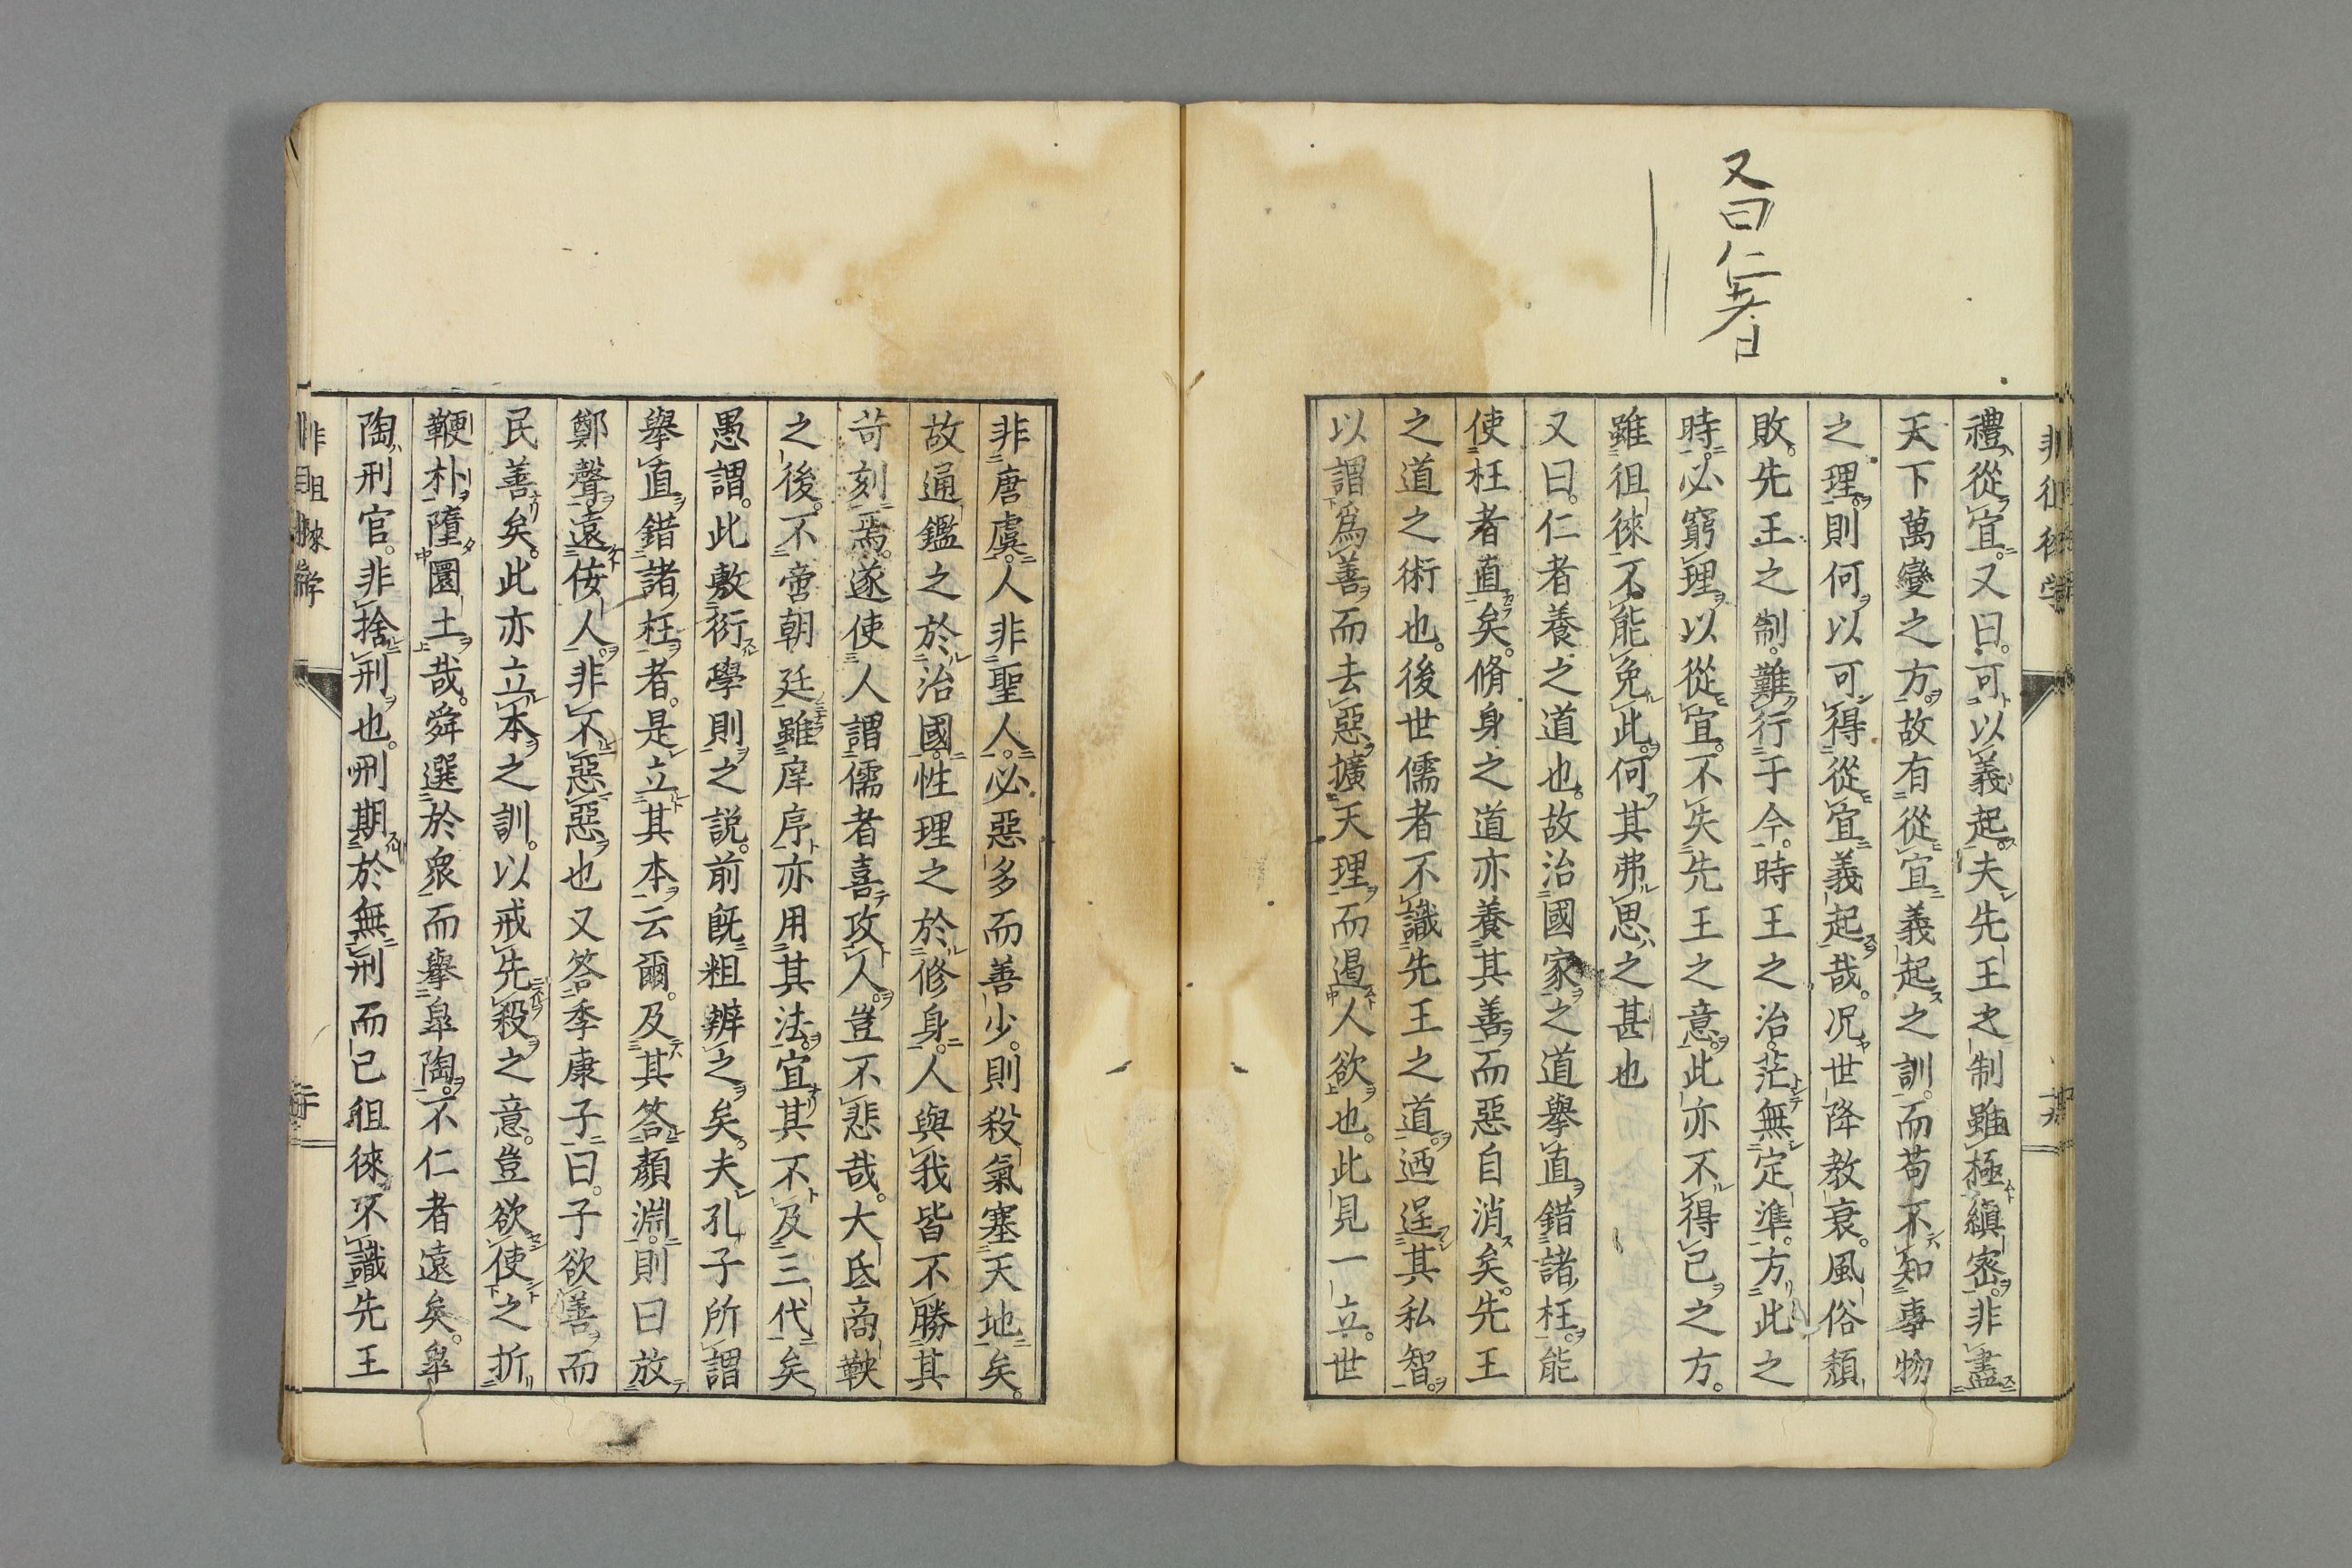 又曰仁者
禮從宜又曰可以義起夫先王之制雖極縝密非盡
天下萬變之方故有從宜義起之訓而苟不知事物
之理則何以可得從宜義起哉况世降教衰風俗頽
敗先王之制難行于今時王之治茫無定準方此之
時必窮理以從宜不失先王之意此亦不得已之方
雖徂徠不能免此何其弗思之甚也
又曰仁者養之道也故治國家之道擧直錯諸枉能
使枉者直矣脩身之道亦養其善而惡自消矣先王
之道之術也後世儒者不識先王之道迺逞其私智
以謂爲善而去惡擴天理而遏人欲也此見一立世
非唐虞人非聖人必惡多而善少則殺氣塞天地矣
故通鑑之於治國性理之於修身人與我皆不勝其
苛刻焉遂使人謂儒者喜攻人豈不悲哉大氐商鞅
之後不啻朝廷雖庠序亦用其法宜其不及三代矣
愚謂此敷衍學則之説前既粗辨之矣夫孔子所謂
擧直錯諸枉者是立其本云爾及其答顏淵則曰放
鄭聲遠佞人非不惡惡也又答季康子曰子欲善而
民善矣此亦立本之訓以戒先殺之意豈欲使之折
鞭朴墮圜土哉舜選於衆而擧皐陶不仁者遠矣皐
陶刑官非捨刑也刑期於無刑而已徂徠不識先王